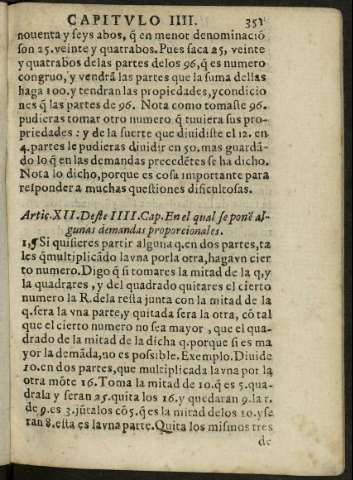 CAPITVLO IIII. 351
nouenta y seys abos, q̃ en menor denominació
son 25. veinte y quatrabos. Pues saca 25, veinte
y quatrabos delas partes delos 96, q̃ es numero
congruo, y vendrã las partes que la suma dellas
haga 100. y tendran las propiedades, y condicio
nes q̃ las partes de 96. Nota como tomaste 96.
pudieras tomar otro numero q̃ tuuiera sus pro-
priedades: y de la suerte que diuidiste el 12. en
4. partes le pudieras diuidir en 50. mas guardã-
do lo q̃ en las demandas precedẽtes se ha dicho.
Nota lo dicho, porque es cosa importante para
responder a muchas questiones dificultosas.
Artic. XII. Deste IIII. Cap. En el qual se ponẽ al-
gunas demandas proporcionales.
1. ¶ Si quisieres partir alguna q. en dos partes, ta
les q̃ multiplicãdo la vna por la otra, haga vn cier
to numero. Digo q̃ si tomares la mitad de la q, y
la quadrares, y del quadrado quitares el cierto
numero la R. de la resta junta con la mitad de la
q. sera la vna parte, y quitada sera la otra, cõ tal
que el cierto numero no sea mayor, que el qua-
drado de la mitad de la dicha q. porque si es ma
yor la demãda, no es possible. Exemplo. Diuide
10. en dos partes, que multiplicada la vna por la
otra mõte 16. Toma la mitad de 10. q̃ es 5. qua-
drala y seran 25. quita los 16. y quedaran 9. la r.
de 9. es 3. jũtalos cõ 5. q̃ es la mitad de los 10. y se
ran 8. esta es la vna parte. Quita los mismos tres
de